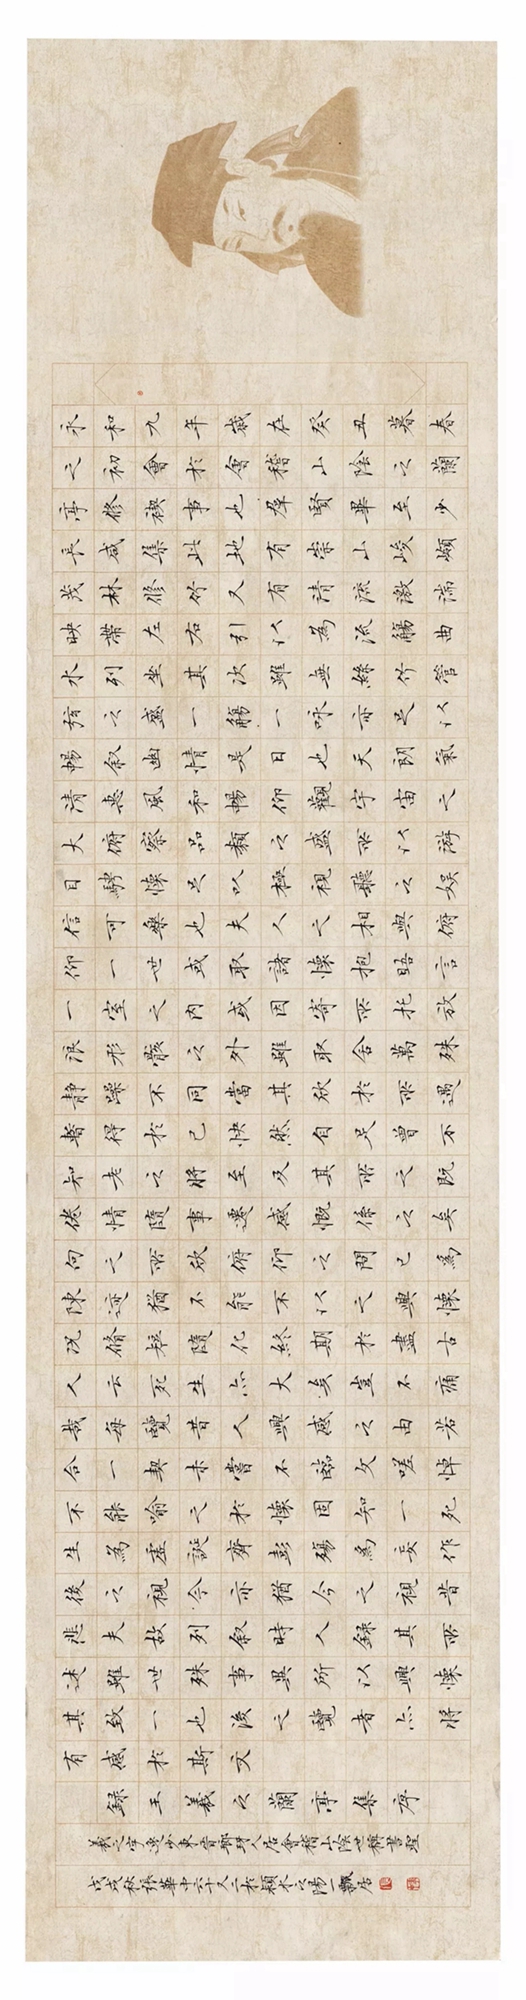 永和九年歲在癸丑暮春
之初會於會稽山陰之蘭
亭修禊事也羣賢畢至少
長咸集此地有崇山峻嶺
茂林修竹又有清流激湍
映帶左右引以為流觴曲
水列坐其次雖無絲竹管
弦之盛一觴一咏亦足以
暢叙幽情是日也天朗氣
清惠風和暢仰觀宇宙之
大俯察品類之盛所以游
目騁懷足以極視聽之娛
信可樂也夫人之相與俯
仰一世或取諸懷抱晤言
一室之內或因寄所托放
浪形骸之外雖取舍萬殊
靜躁不同當其欣於所遇
暫得於己快然自足曾不
知老之將至及其所之既
倦情隨事遷感慨係之矣
向之所欣俯仰之間已為
陳迹猶不能不以之興懷
況脩短隨化終期於盡古
人云死生亦大矣豈不痛
哉每覽昔人興感之由若
合一契未嘗不臨文嗟悼
不能喻之於懷固知一死
生為虛誕齊彭殤為妄作
後之視今亦猶今之視昔
悲夫故列叙時人錄其所
述雖世殊事異所以興懷
其致一也後之覽者亦將
有感於斯文
錄王羲之蘭亭集序
羲之字逸少東晉瑯琊人居會稽山陰世稱書聖
戊戌秋張華中六十又二於潁水之陽一瓢居